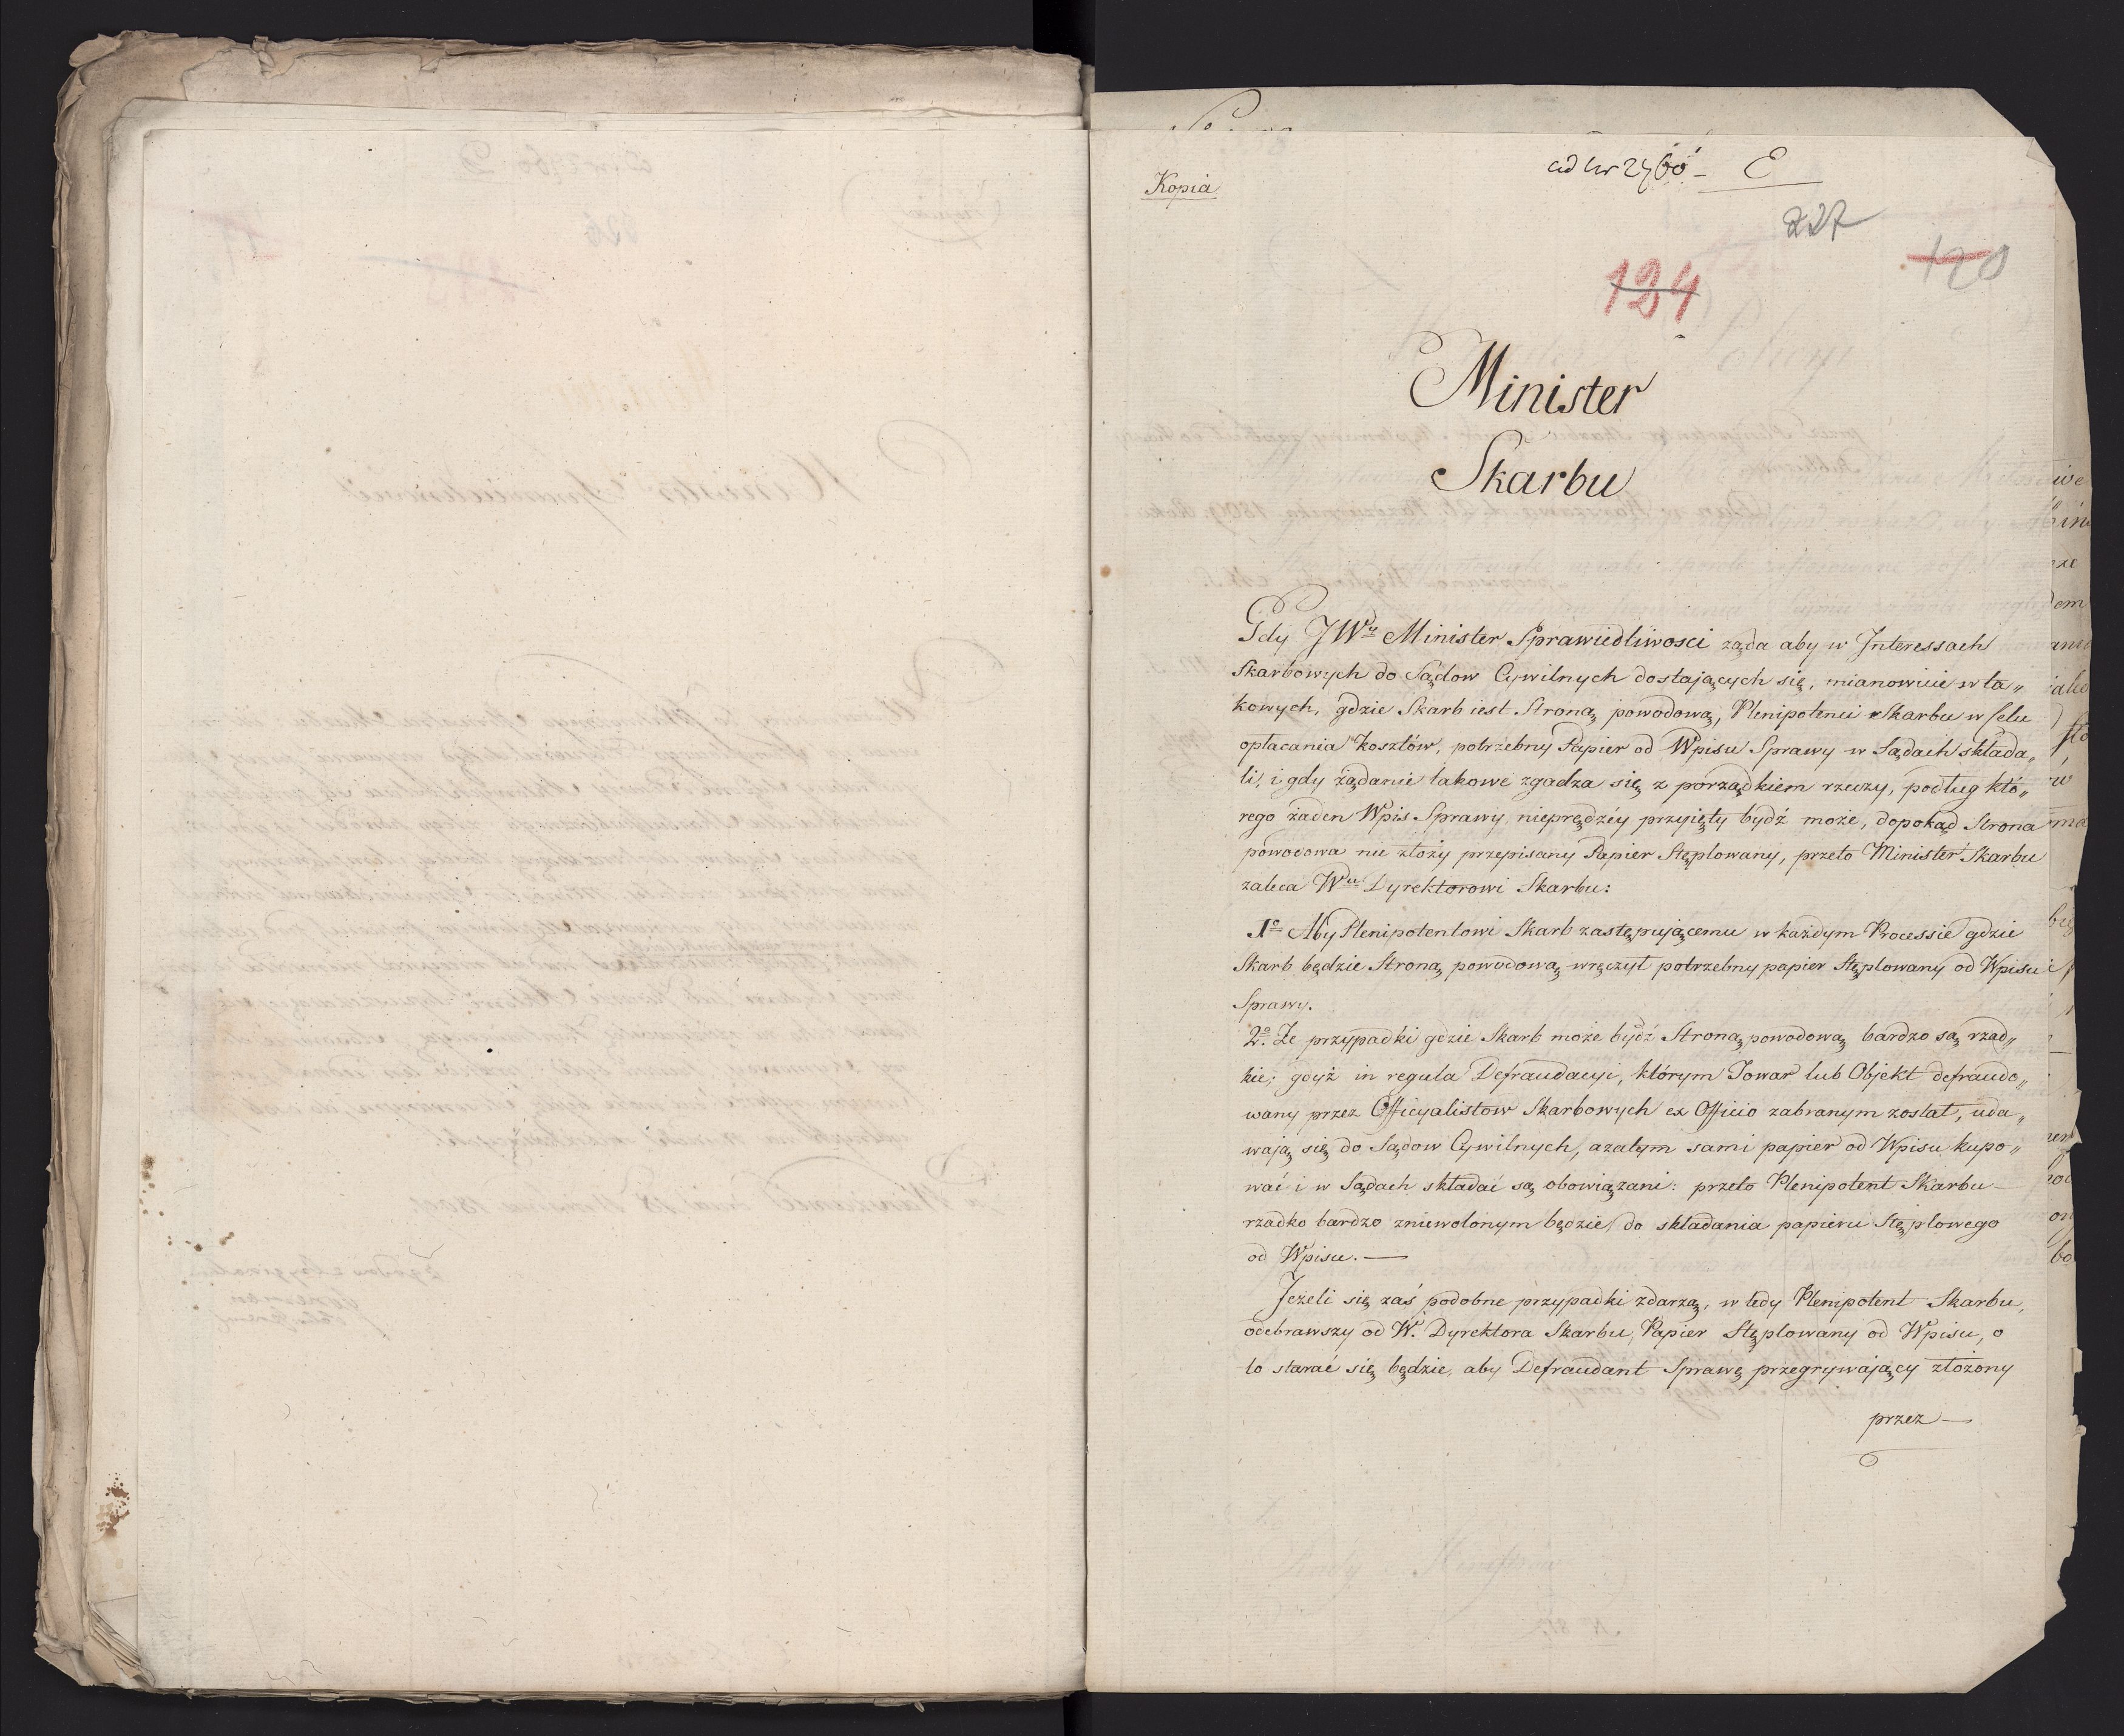 Kopia
ad Nr 2760 - E
227
120
124
Minister
Skarbu
Gdÿ JWy Minister Sprawiedliwosci ząda aby w Interessach
Skarbowych do Sądow Cywilnych dostaiących się, mianowicie w ta„
kowych, gdzie Skarb iest Stroną powodową, Plenipotenci Skarbu w Celu
opłacania kosztów, potrzebny Papier od Wpisu Sprawy w Sądach składa„
li, i gdy żądanie takowe zgadza się z porządkiem rzeczy, podług któ„
rego żaden Wpis Sprawy nieprędzéy przyięty bydź może, dopokąd Strona
powodowa nie złoży przepisany Papier Stęplowany, przeto Minister Skarbu
zaleca Wu Dyrektorowi Skarbu:
1o Aby Plenipotentowi Skarb zastępuiącemu w każdym Processie gdzie
Skarb będzie Stroną powodową wręczył potrzebny papier Stęplowany od Wpisu
Sprawy.
2o. Ze przypadki gdzie Skarb może bydź Stroną powodową bardzo są rzad„
kie; gdyż in regula Defraudacyi, którym Towar lub Objekt defraudo„
wany przez Officyalistow Skarbowych ex Officio zabranym został, uda„
waią się do Sądow Cywilnych, azatym sami papier od Wpisu kupo„
wać i w Sądach składać są obowiązani: przeto Plenipotent Skarbu
rzadko bardzo zniewolonym będzie do składania papieru Stęplowego
od Wpisu. —
Jeżeli się zaś podobne przypadki zdarzą, w tedy Plenipotent Skarbu,
odebrawszy od W. Dyrektora Skarbu, Papier Stęplowany od Wpisu, o
to starać się będzie, aby Defraudant Sprawę przegrywaiący złożony
przez —